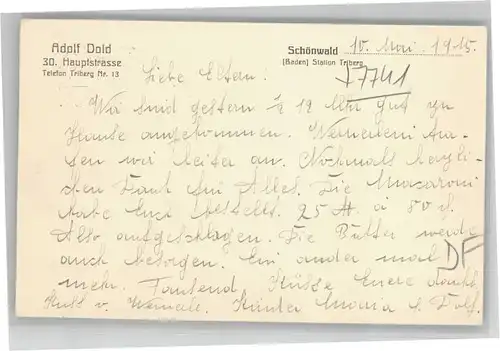 Adolf Dold
30. Hauptstrasse
Telefon Triberg Nr. 13
Schönwald 10. Mai 1915.
(Baden) Station Triberg
Liebe Eltern!
Wir sind gestern ½ 12 Uhr gut zu
Hause angekommen.
sen wir heiter an. Nochmals herzli-
chen Dank für Alles. Die Macaroni
habe bestellt. 25 à 80
Also aufgeschlagen. Die Butter werde
auch besorgen. Ein ander mal
DF
mehr. Tausend Küsse Euere dankb
Kuss v. Kinder Maria